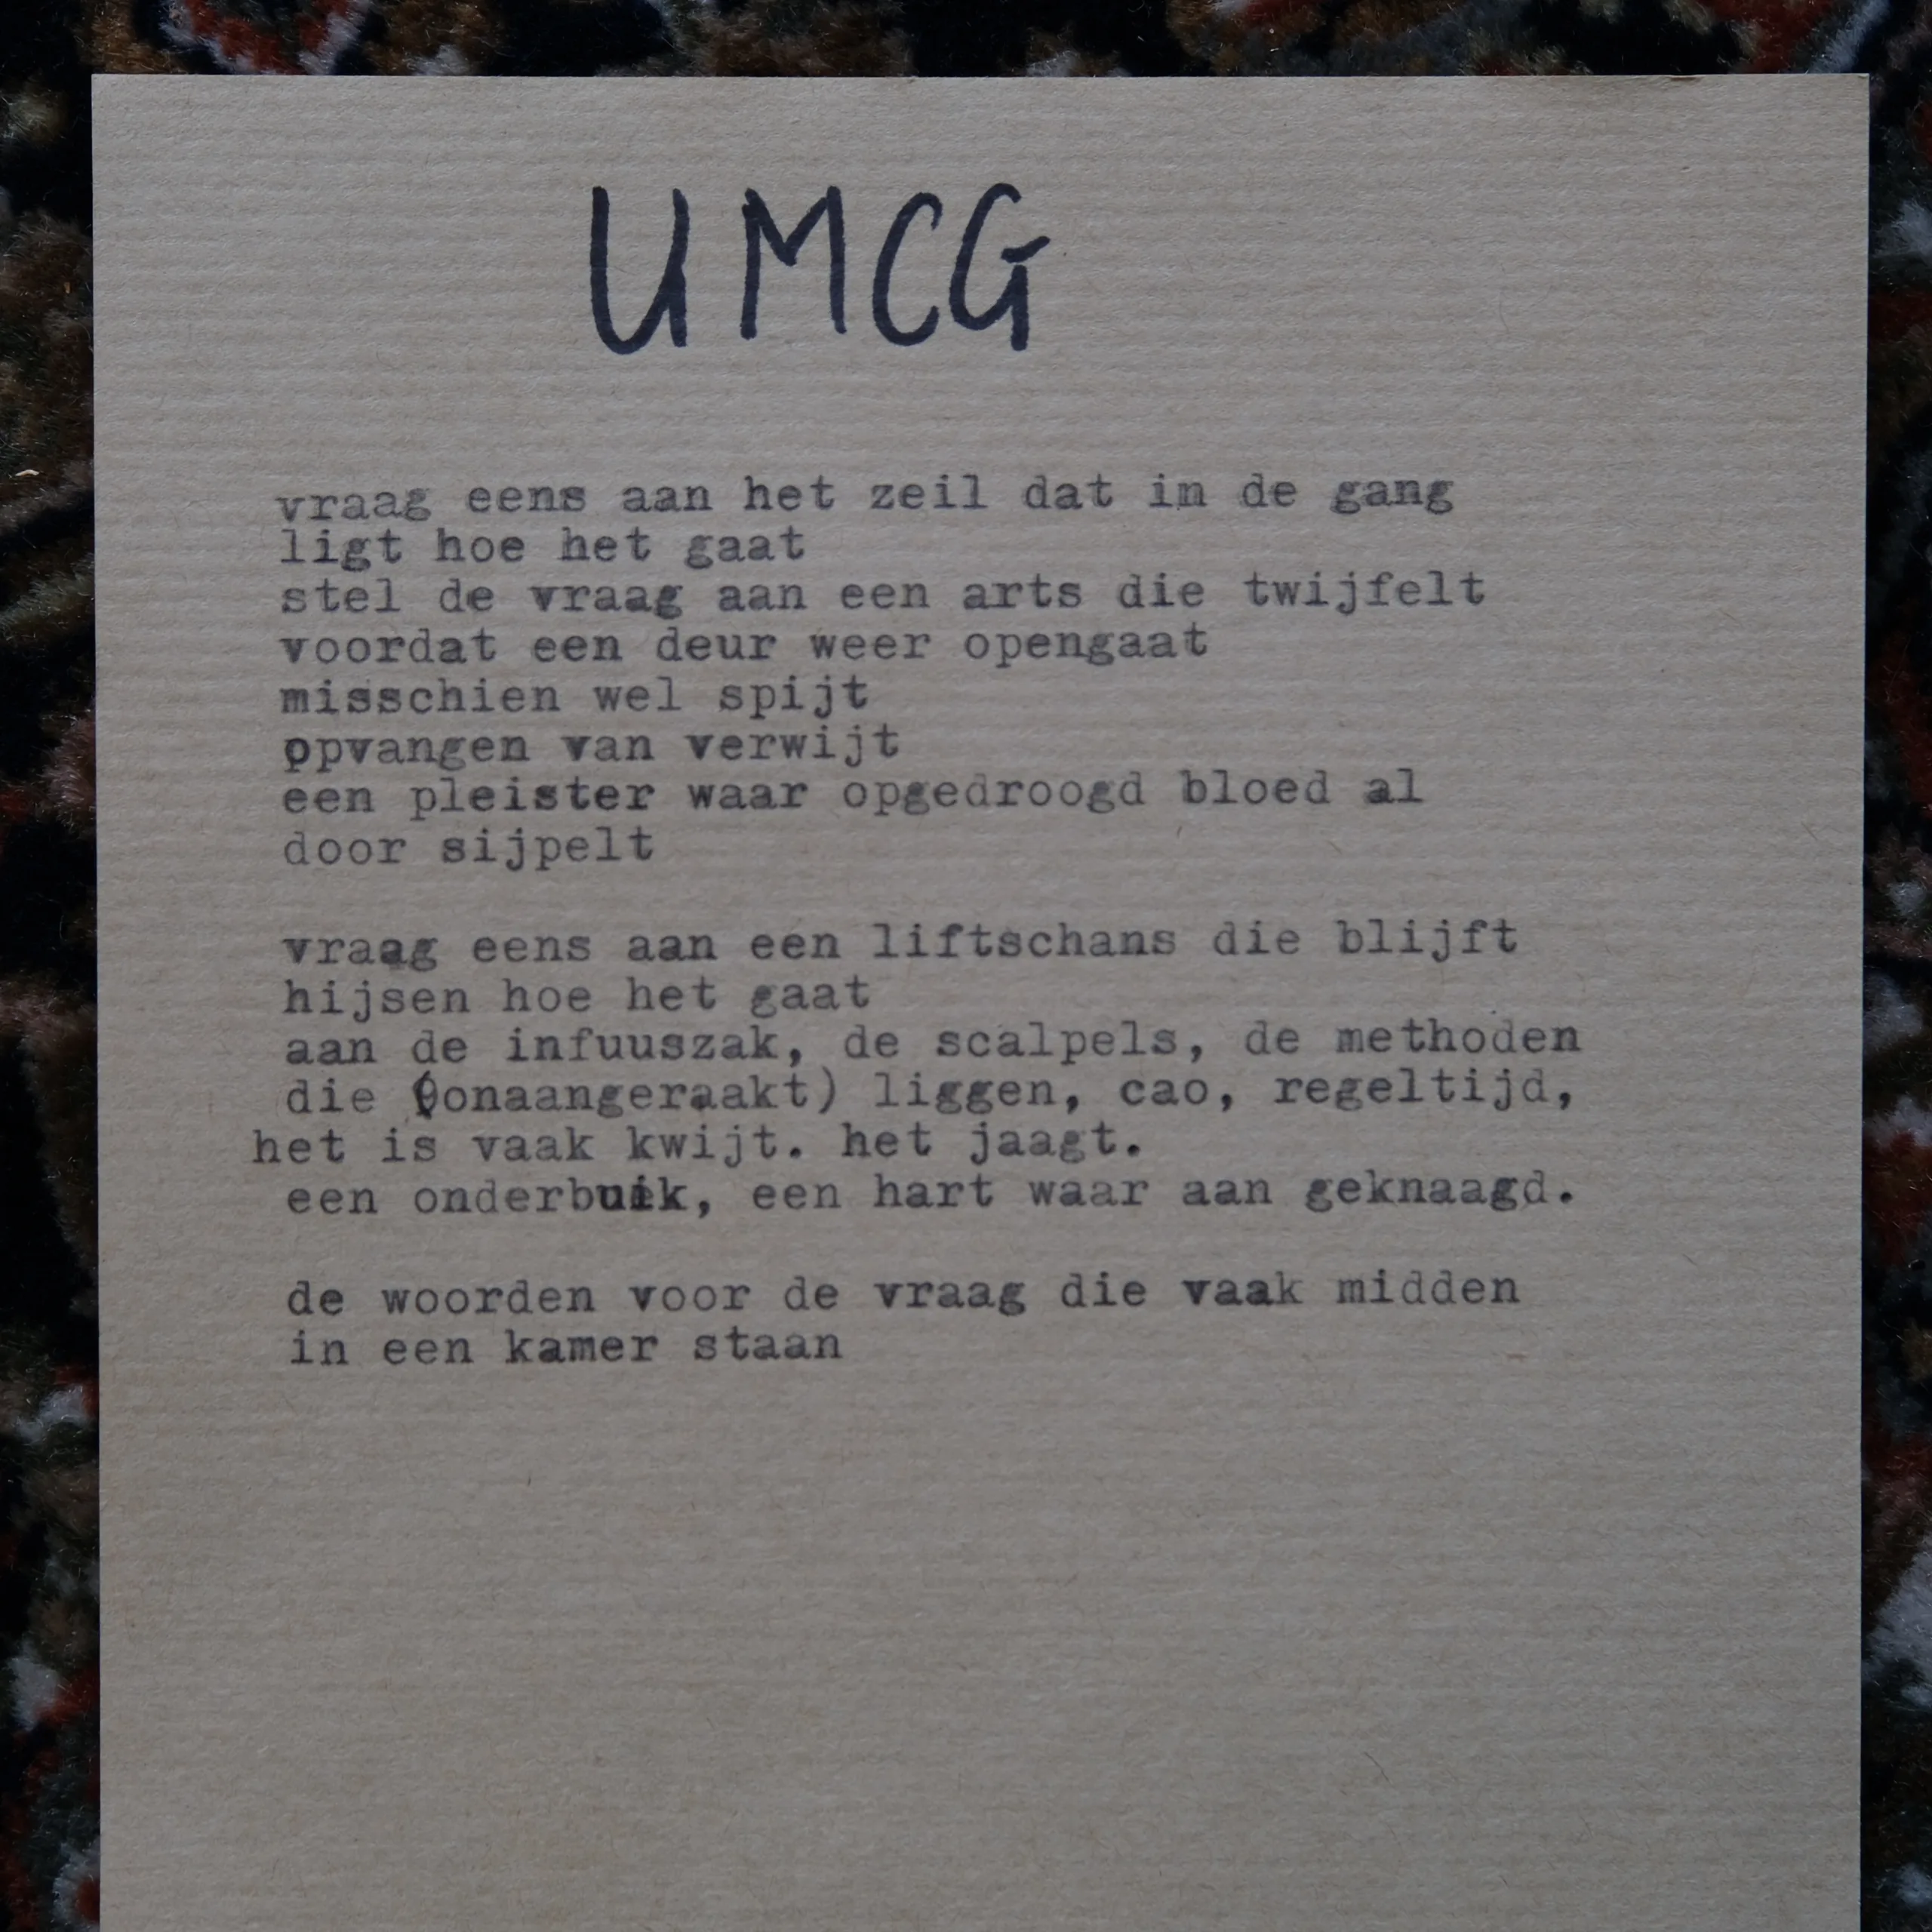 UMCG
vraag eens aan het zeil dat in de gang
ligt hoe het gaat
stel de vraag aan een arts die twijfelt
voordat een deur weer opengaat
misschien wel spijt
opvangen van verwijt
een pleister waar opgedroogd bloed al
door sijpelt
vraag eens aan een liftschans die blijft
hijsen hoe het gaat
aan de infuuszak, de scalpels, de methoden
die (onaangeraakt) liggen, cao, regeltijd,
het is vaak kwijt. het jaagt.
een onderbuik, een hart waar aan geknaagd.
de woorden voor de vraag die vaak midden
in een kamer staan